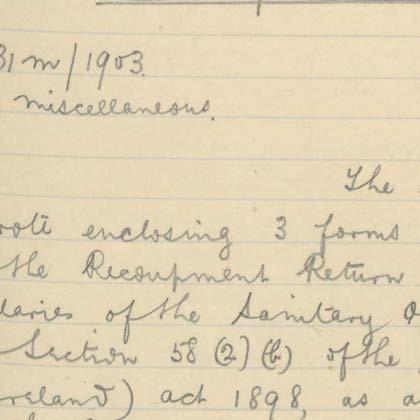 31 m/1903.
miscellaneous.
The
wrote enclosing 3 forms
the Recoupment Return
laries of the Sanitary O
Section 58 (2) (b) of the
reland) act 1898, as a